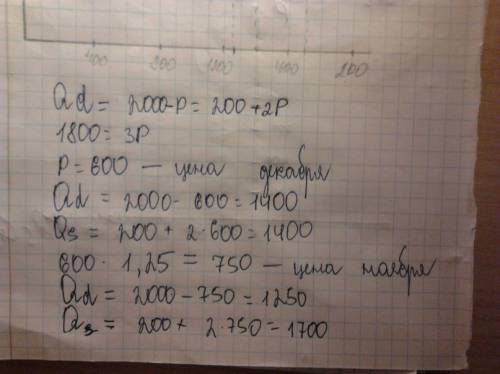 400 800 1200 1600 200
Qd = 2000-P = 200 +2P
1800 = 3P
P = 600 — цена декабря
Qd = 2000 - 600 = 1400
Qs = 200 + 2·600 = 1400
600 · 1,25 = 750 — цена ноября
Qd = 2000 - 750 = 1250
Qs = 200 + 2·750 = 1700